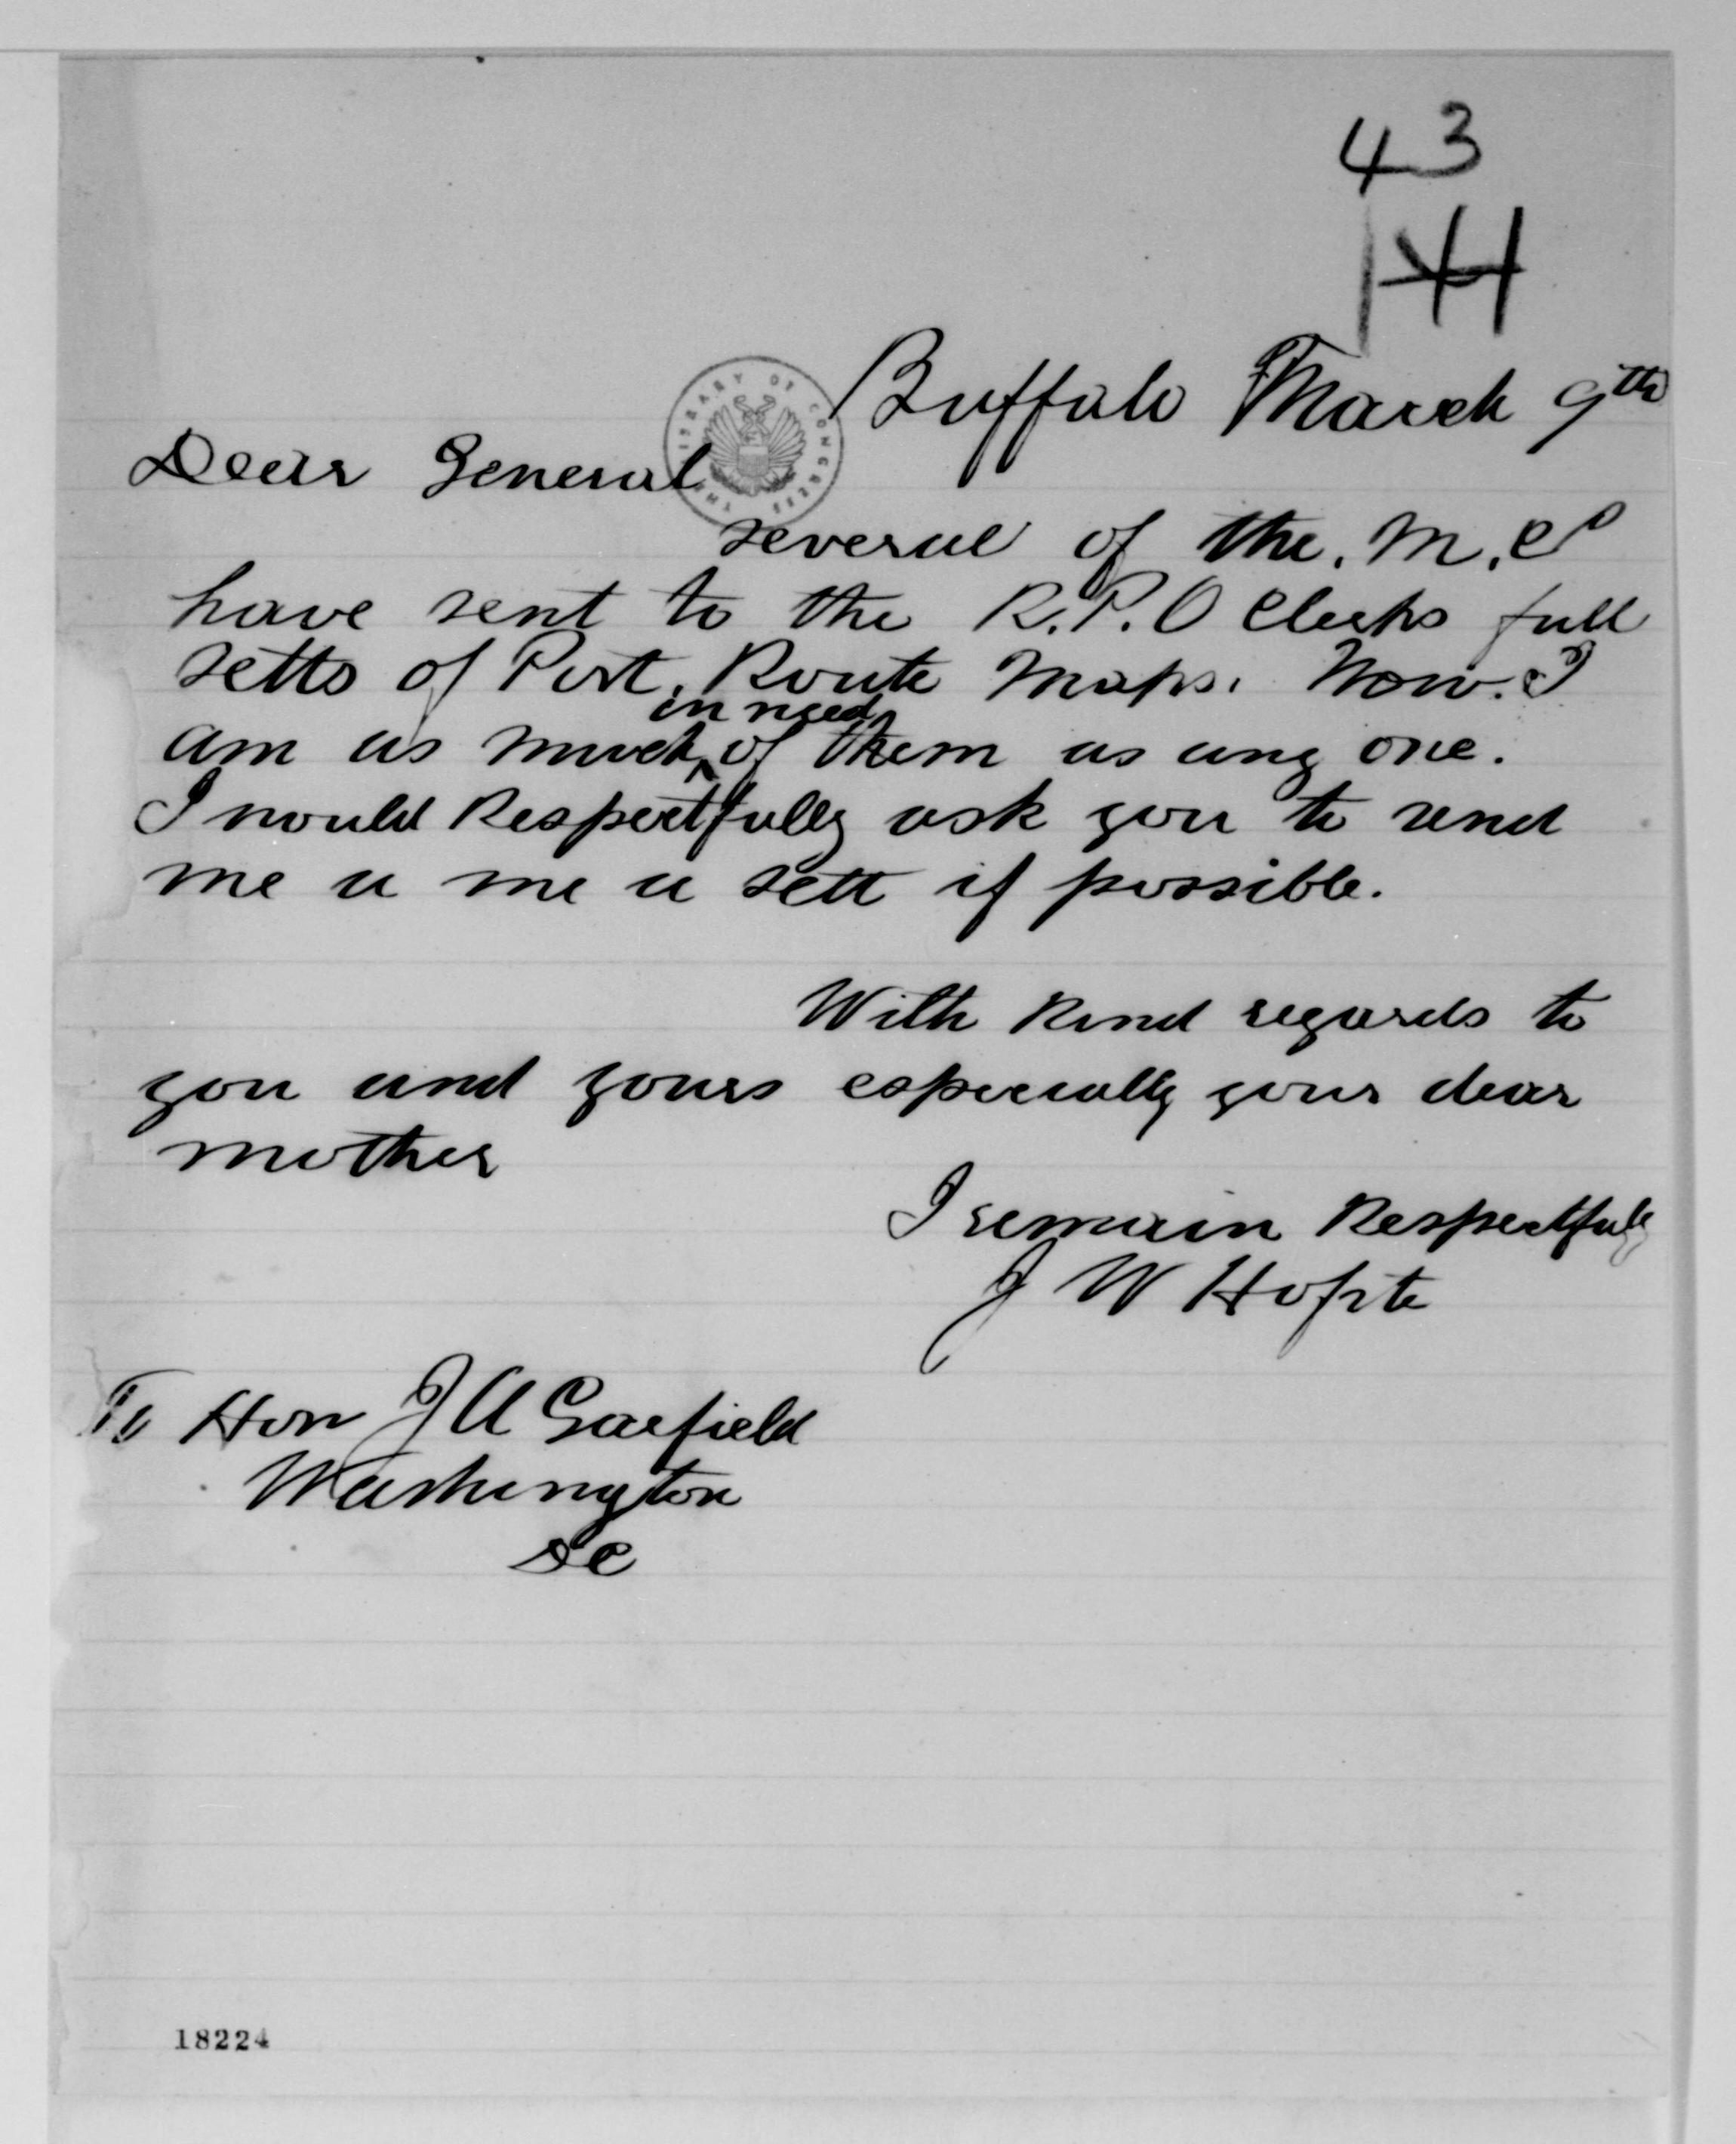 43
Buffalo March 9th
THE LIBRARY OF CONGRESS
Dear General
several of the. M. Cs
have sent to the R. P. O Clerks full
setts of Post. Route Maps. Now. I
in need
am as much of them as any one.
I would Respectfully ask you to send
me a me a sett if possible.
With Kind regards to
you and yours especially your dear
mother
I remain Respectfully
J W
To Hon J A Garfield
Washington
DC
18224